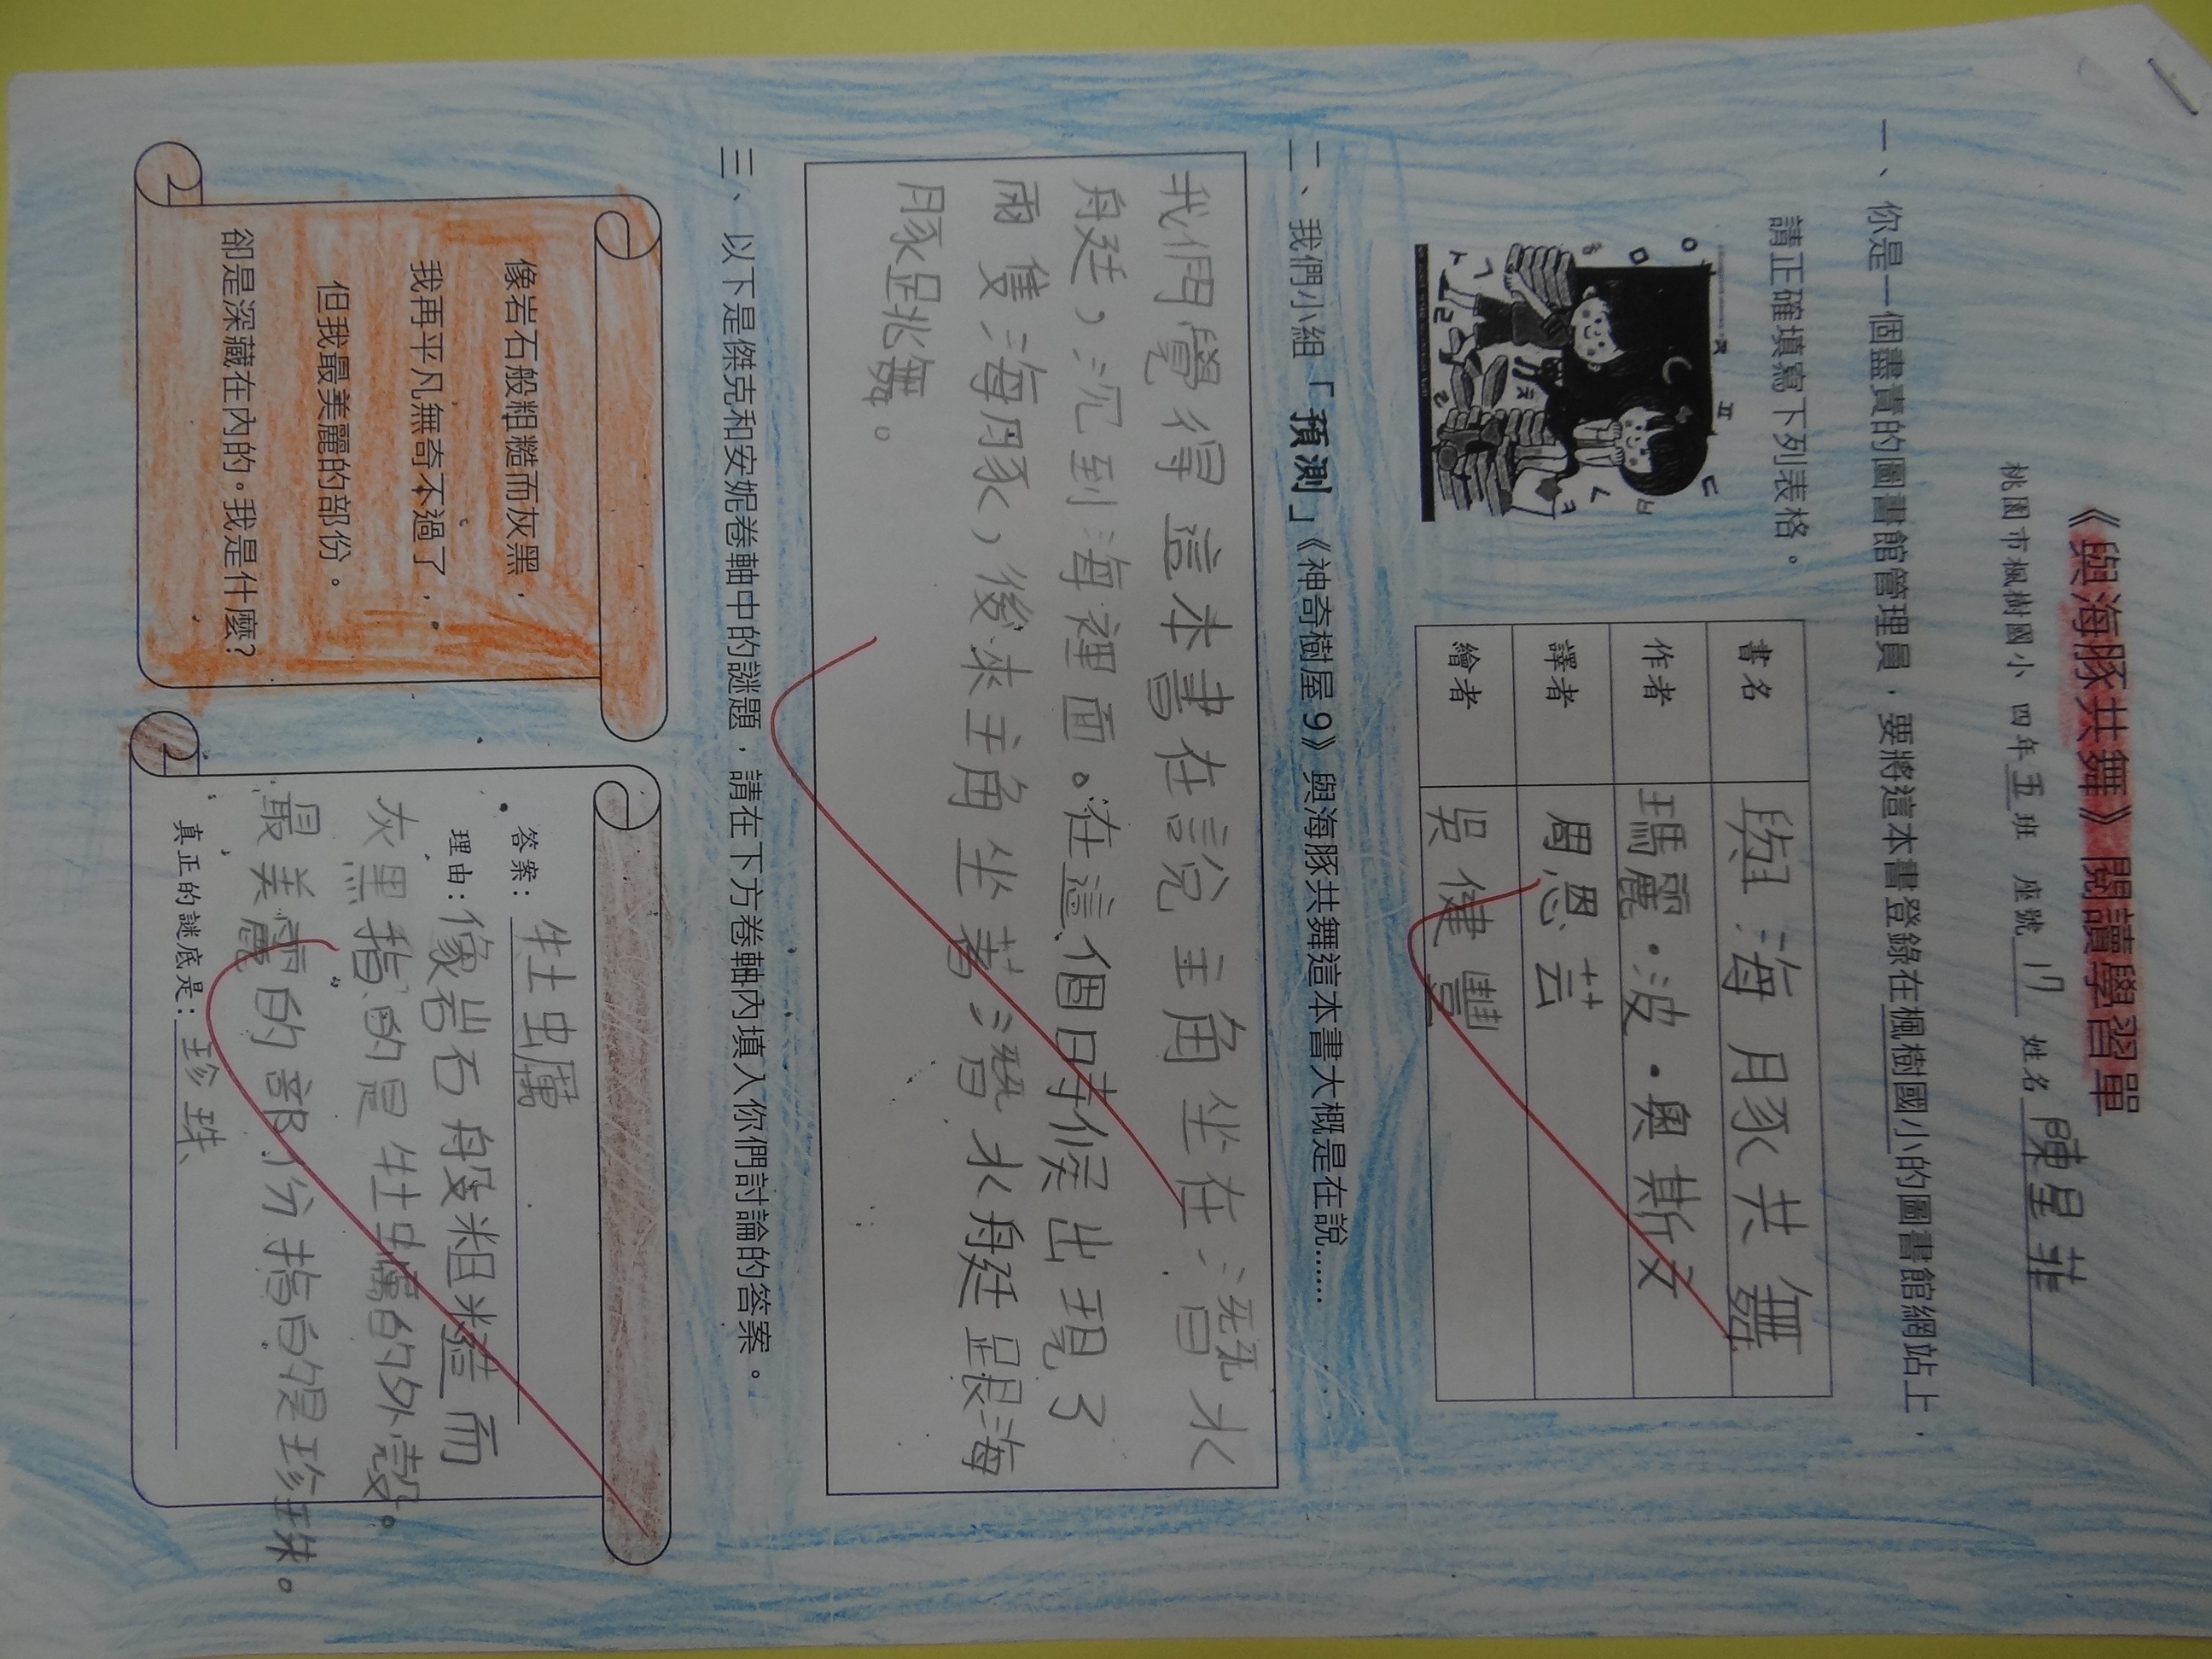 《與海豚共舞》閱讀學習單
桃園市楓樹國小 四年五班 座號 17 姓名 陳星菲
一、你是一個盡責的圖書館管理員,要將這本書登錄在楓樹國小的圖書館網站上,
請正確填寫下列表格。
書名 與海豚共舞
作者 瑪麗・波・奧斯文
譯者 周恩芸
繪者 吳健豐
二、我們小組「預測」《神奇樹屋9》與海豚共舞這本書大概是在說……
我們覺得這本書在說主角坐在潛水
舟廷,沉到海裡面。在這個時候出現了
兩隻海豚,後來主角坐著潛水艇跟海
豚跳舞。
三、以下是傑克和安妮卷軸中的謎題,請在下方卷軸內填入你們討論的答案。
像岩石般粗糙而灰黑,
我再平凡無奇不過了,
但我最美麗的部份,
卻是深藏在內的。我是什麼?
答案:牡蠣
理由:像岩石般粗糙而
灰黑指的是牡蠣的外殼。
最美麗的部份指的是珍珠。
真正的謎底是:珍珠